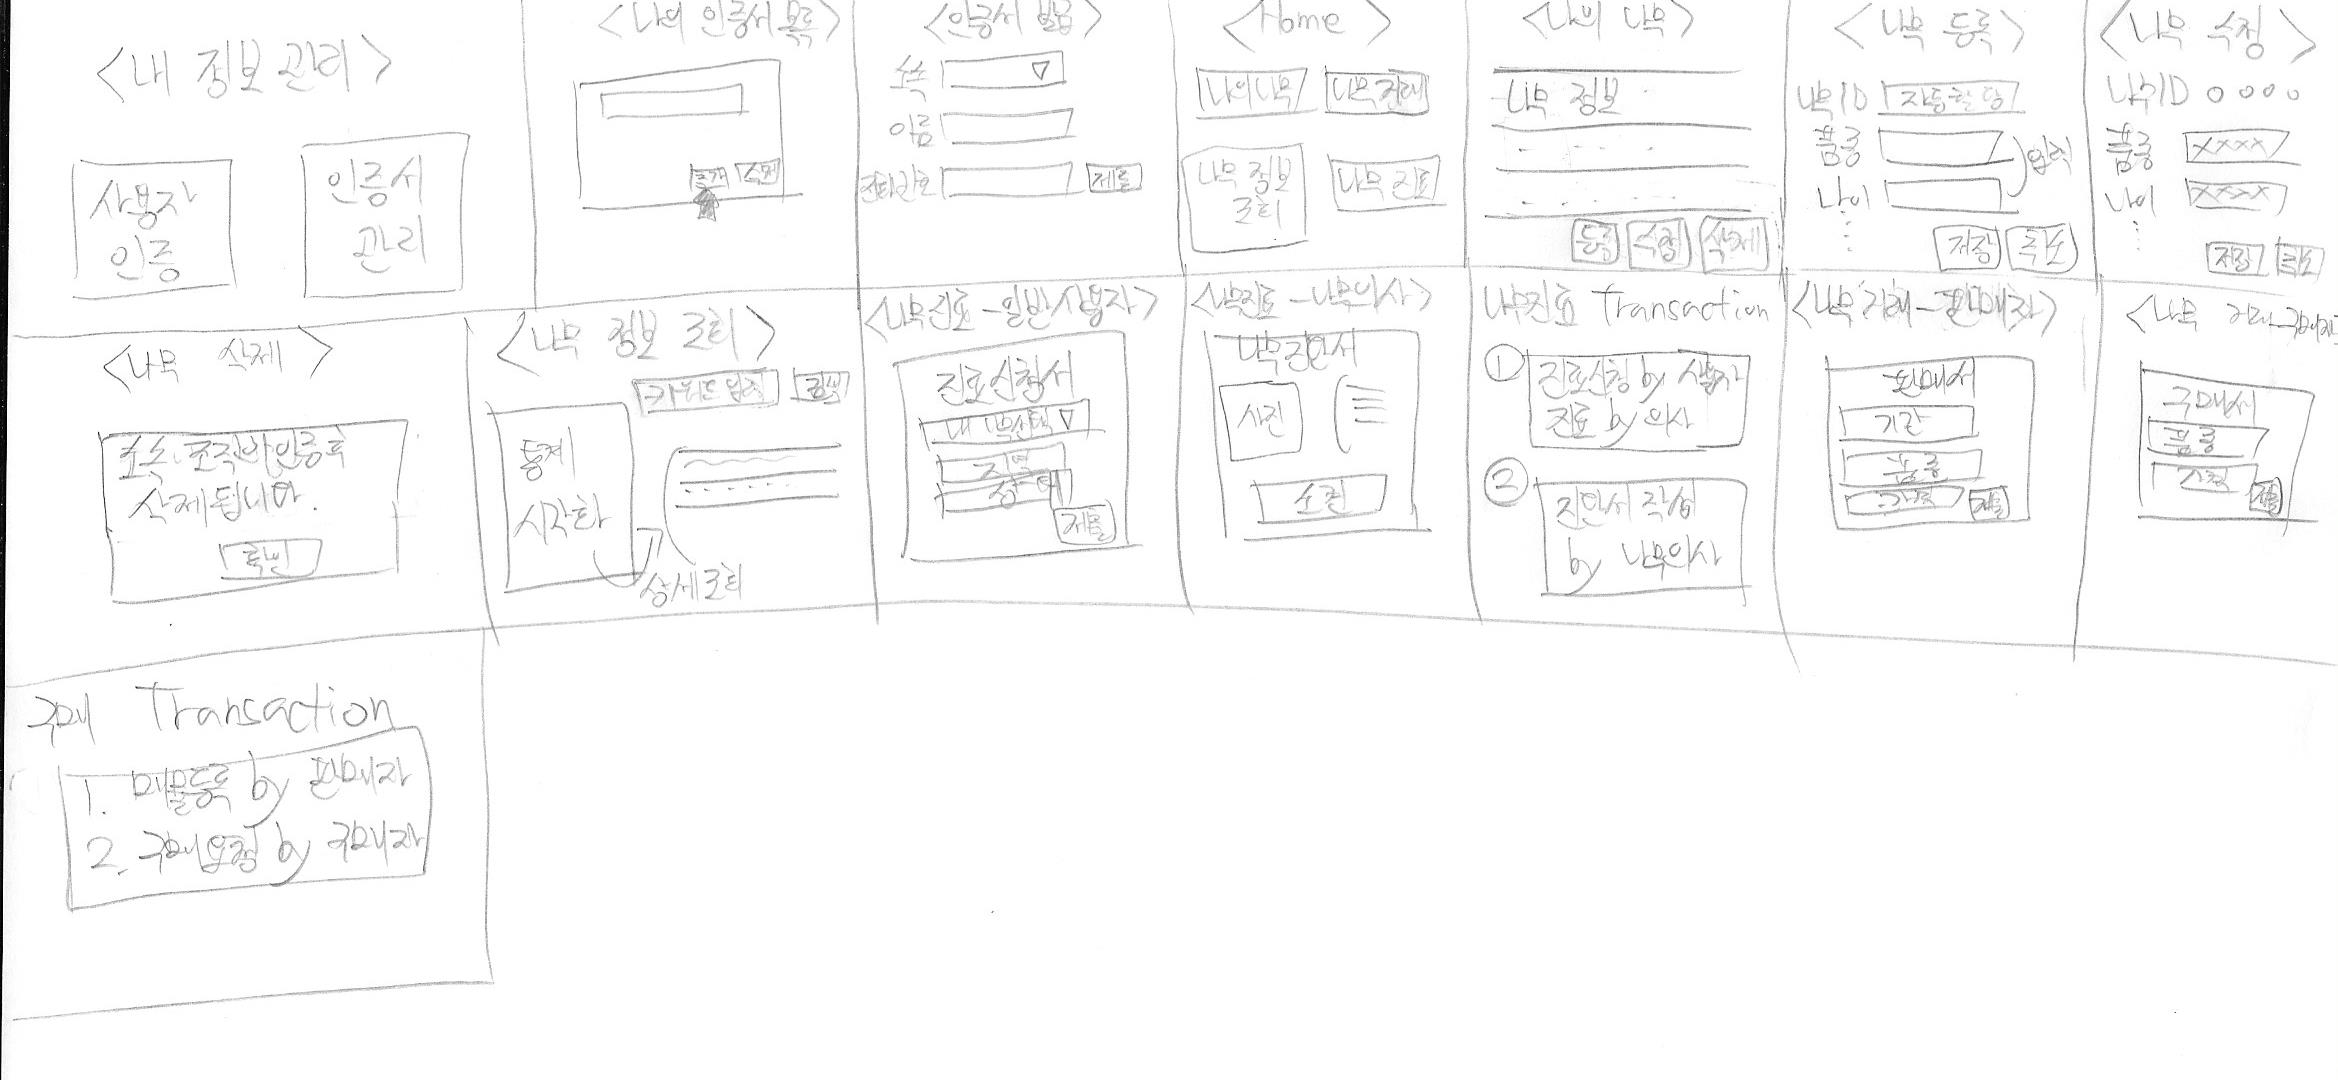 <내 정보 관리>
사용자
인증
인증서
관리
<나의 인증서 목록>
<인증서 발급>
소속
이름
전화번호
제출
<Home>
나의 나무
나무 거래
나무 정보
조회
나무 진료
<나의 나무>
나무 정보
등록
수정
삭제
<나무 등록>
나무ID
자동할당
품종
나이
입력
저장
취소
<나무 수정>
나무ID ○○○○
품종
XXXX
나이
XXXX
저장
취소
<나무 삭제>
소속 조직의 인증 후
삭제됩니다.
확인
<나무 정보 조회>
키워드 입력
통계
시각화
상세조회
<나무진료-일반사용자>
진료신청서
내 나무선택
지역
제출
<나무진료-나무의사>
나무진단서
사진
소견
나무진료 Transaction
①
진료신청 by 사용자
진료 by 의사
②
진단서 작성
by 나무의사
<나무거래-판매자>
판매서
기간
품종
가격
제출
<나무 거래-구매자
구매서
품종
가격
제출
구매 Transaction
1. 매물등록 by 판매자
2. 구매요청 by 구매자